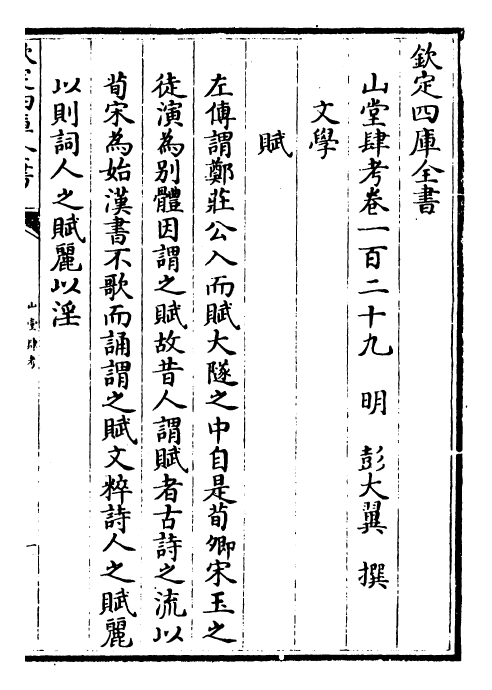 欽定四庫全書
山堂肆考卷一百二十九 明 彭大翼 撰
文學
賦
左傳謂鄭莊公入而賦大隧之中自是荀卿宋玉之
徒演為別體因謂之賦故昔人謂賦者古詩之流以
荀宋為始漢書不歌而誦謂之賦文粹詩人之賦麗
以則詞人之賦麗以淫
欽定四庫全書
山堂肆考
一